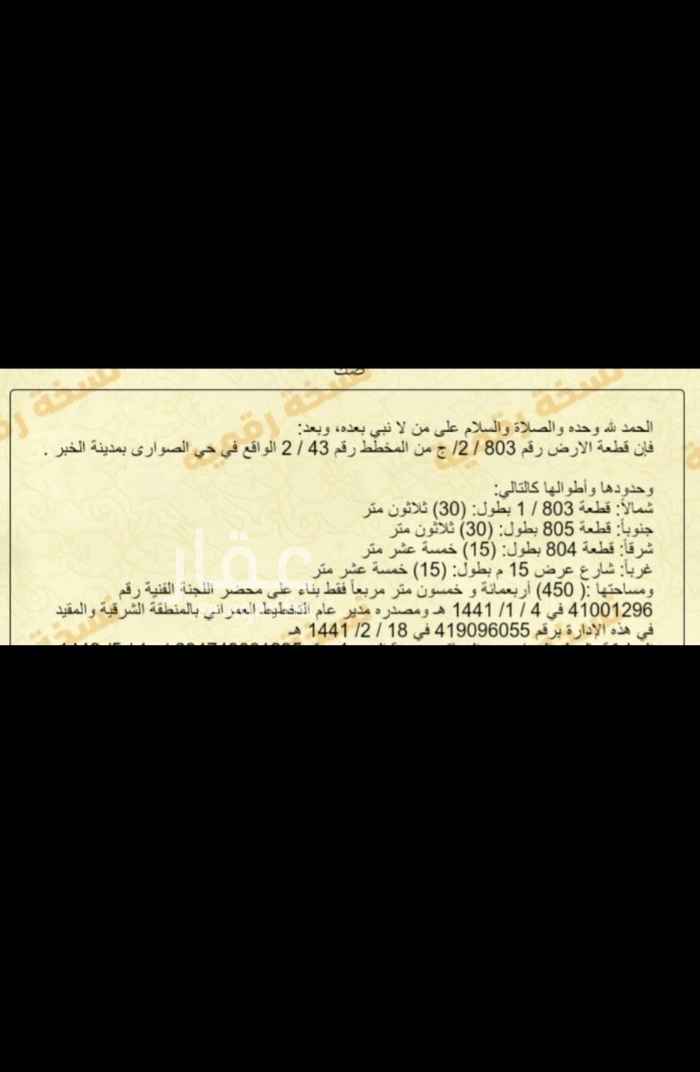 صك
الحمد لله وحده والصلاة والسلام على من لا نبي بعده، وبعد:
فإن قطعة الارض رقم 803 / 2/ ج من المخطط رقم 43 / 2 الواقع في حي الصوارى بمدينة الخبر .
وحدودها وأطوالها كالتالي:
شمالاً: قطعة 803 / 1 بطول: (30) ثلاثون متر
جنوباً: قطعة 805 بطول: (30) ثلاثون متر
شرقاً: قطعة 804 بطول: (15) خمسة عشر متر
غرباً: شارع عرض 15 م بطول: (15) خمسة عشر متر
ومساحتها :( 450) أربعمائة و خمسون متر مربعاً فقط بناء على محضر اللجنة الفنية رقم
41001296 في 4 / 1/ 1441 هـ ومصدره مدير عام التخطيط العمراني بالمنطقة الشرقية والمقيد
في هذه الإدارة برقم 419096055 في 18 / 2/ 1441 هـ
نسخة رقمية
نسخة رقمية
نسخة رقمية
عقار